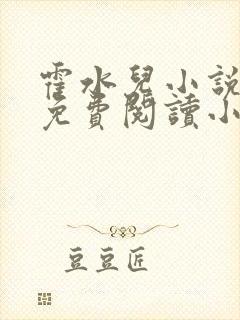 霍水兒小說
免費閱讀小
豆豆匠